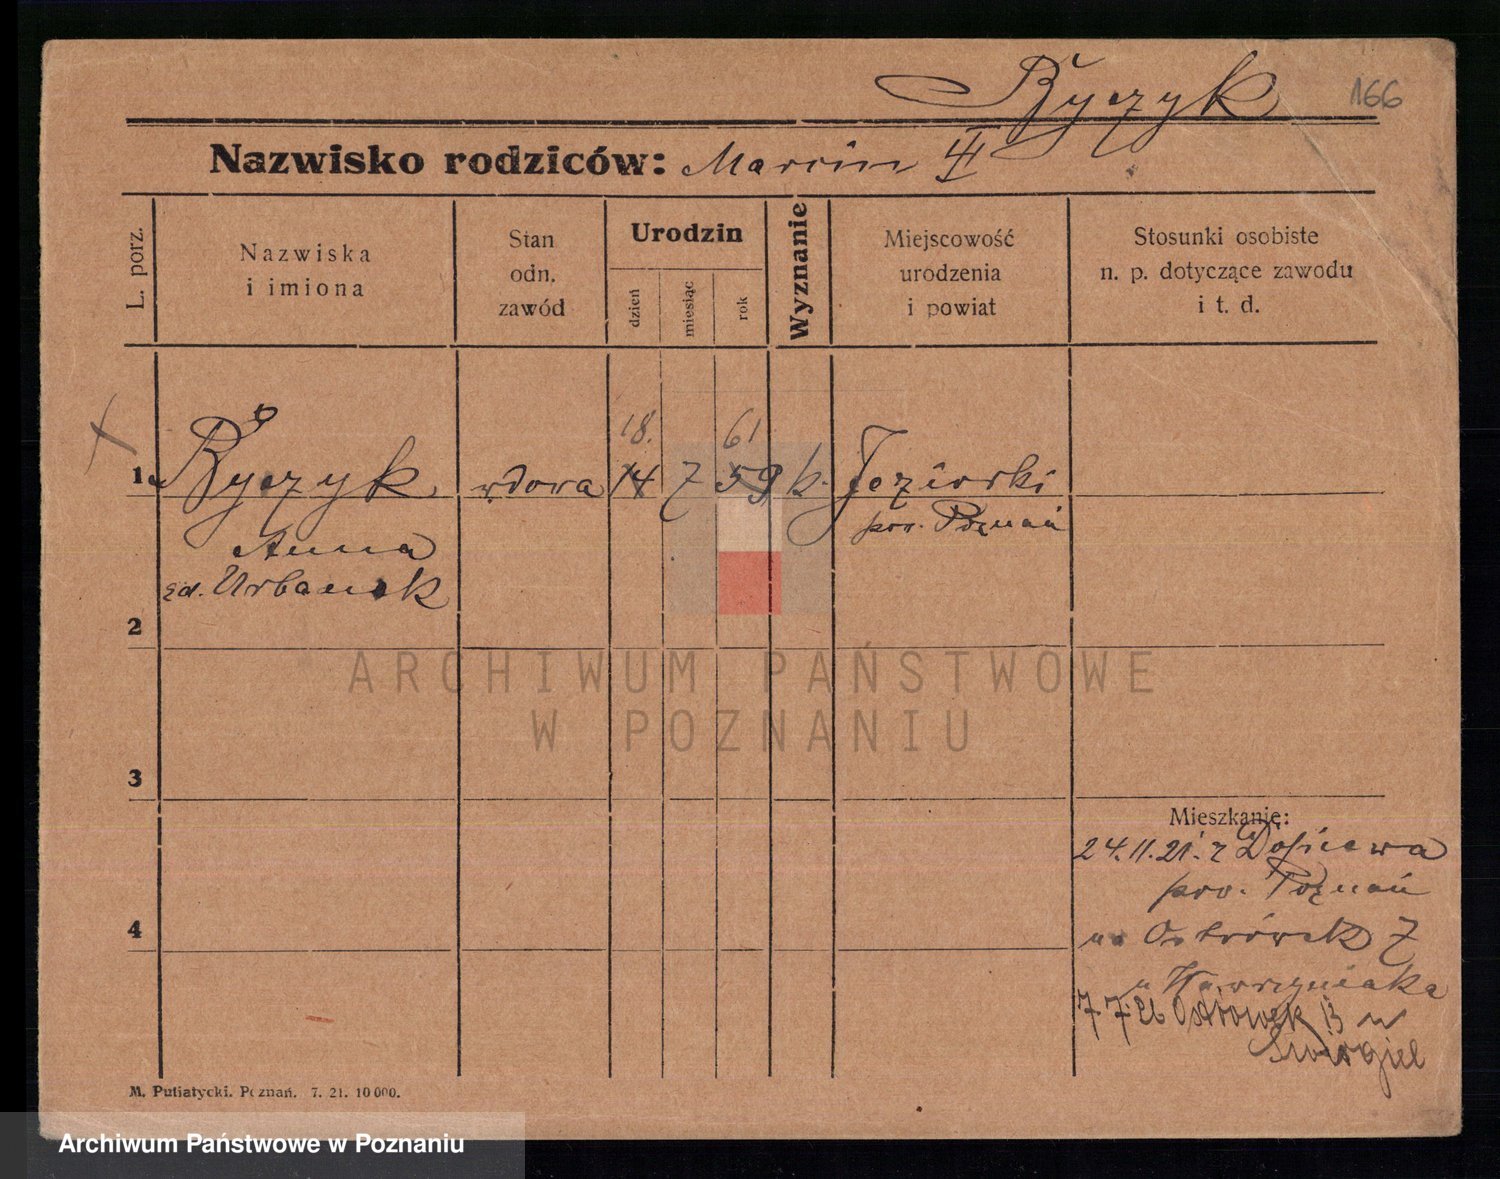 Ryczyk 166
Nazwisko rodziców: Marcin III
L. porz.
Nazwiska
i imiona
Stan
odn.
zawód
Urodzin
dzień
miesiąc
rok
Wyznanie
Miejscowość
urodzenia
i powiat
Stosunki osobiste
n. p. dotyczące zawodu
i t. d.
18. 61
1 Ryczyk wdowa 14 7 59 k. Jeziorki
pow. Poznań
Anna
zd. Urbanek
2
ARCHIWUM PAŃSTWOWE
W POZNANIU
3
Mieszkanie:
24.11.21. z
pow. Poznań
4
na Ostrówek 7
u Wawrzyniaka
7.7.26 Ostrówek 13 u
M. Putiatycki. Poznań. 7. 21. 10 000.
Archiwum Państwowe w Poznaniu